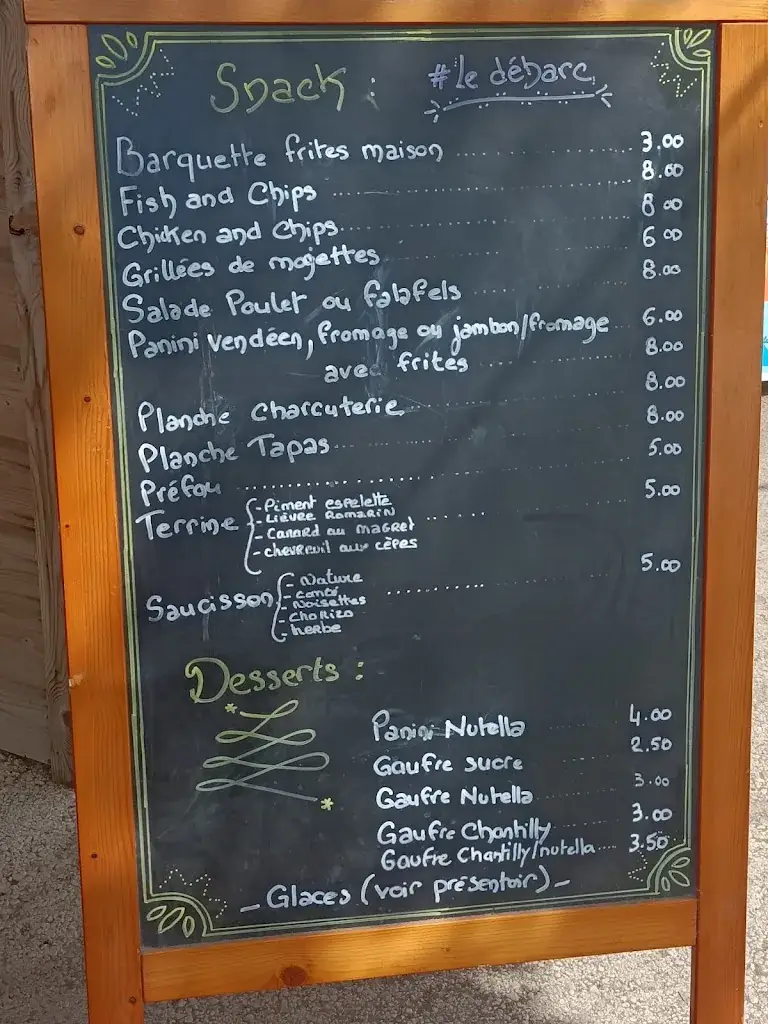 Snack : #le débarc
Barquette frites maison ........ 3.00
Fish and Chips ........ 8.00
Chicken and Chips ........ 8.00
Grillées de mojettes ........ 6.00
Salade Poulet ou falafels ........ 8.00
Panini vendéen, fromage ou jambon/fromage ... 6.00
avec frites ........ 8.00
Planche Charcuterie ........ 8.00
Planche Tapas ........ 8.00
Préfou ........ 5.00
Terrine ........ 5.00
- Piment espelette
- Lièvre Romarin
- Canard au magret
- chevreuil aux cèpes
Saucisson ........ 5.00
- Nature
- Noisettes
- Chorizo
- herbe
Desserts :
Panini Nutella ........ 4.00
Gaufre sucre ........ 2.50
Gaufre Nutella ........ 3.00
Gaufre Chantilly ........ 3.00
Gaufre Chantilly/nutella ... 3.50
- Glaces (voir présentoir) -